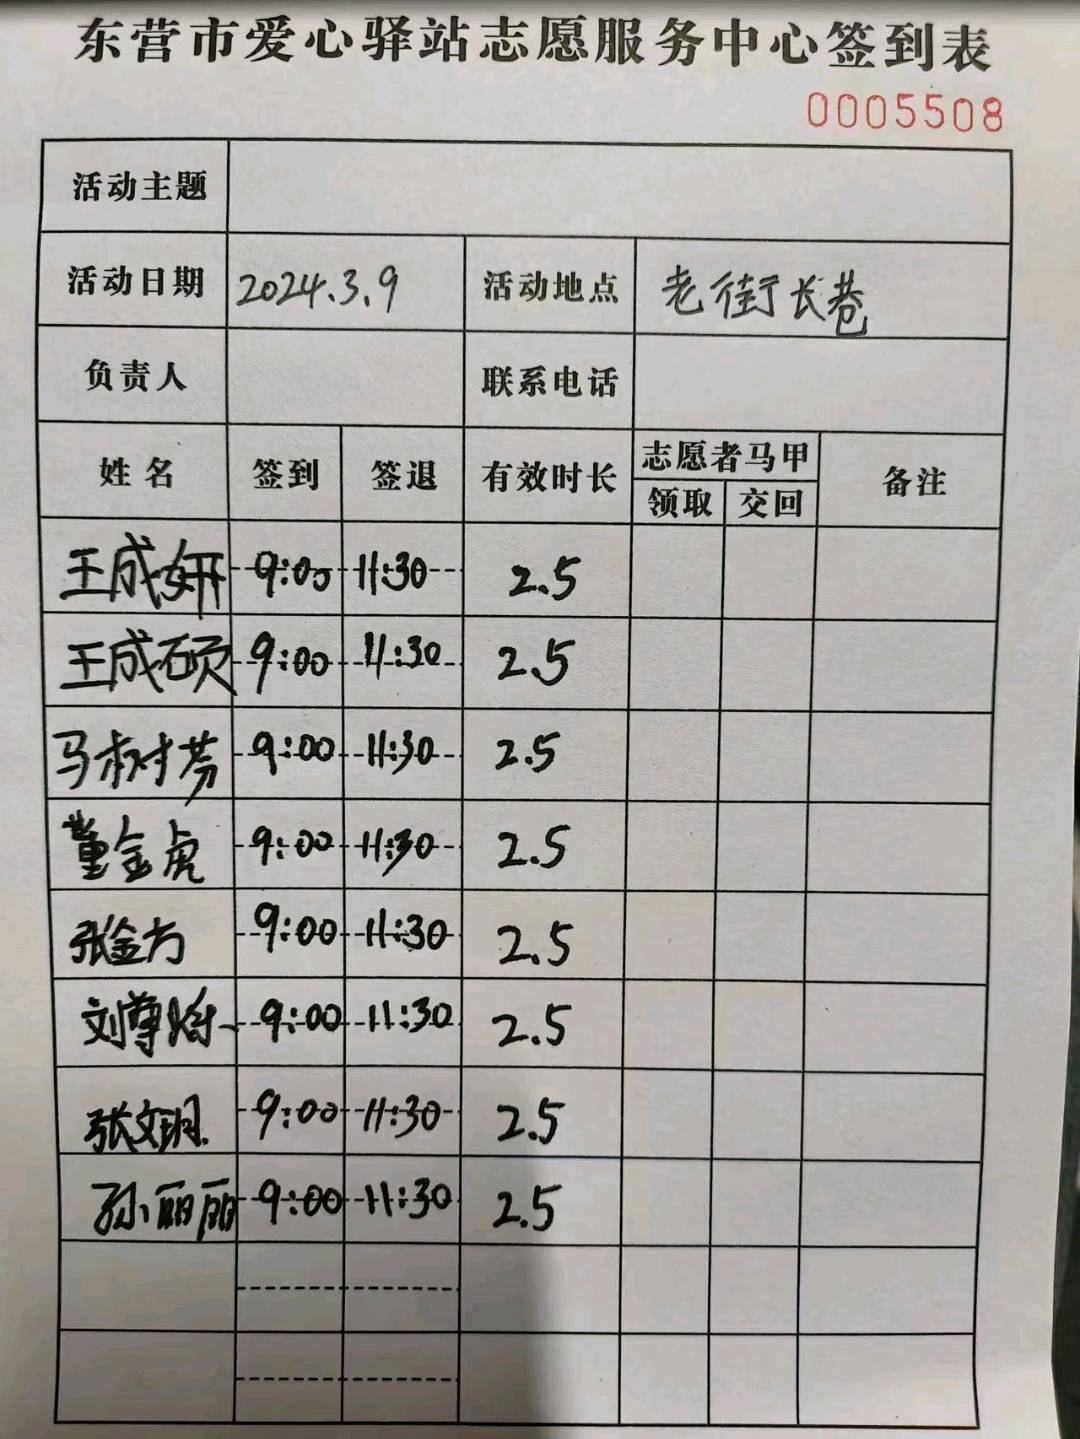 东营市爱心驿站志愿服务中心签到表
0005508
活动主题
活动日期 2024.3.9 活动地点 老街长巷
负责人 联系电话
姓名 签到 签退 有效时长 志愿者马甲 备注
领取 交回
王成妍 9:00 11:30 2.5
王成硕 9:00 11:30 2.5
马树芳 9:00 11:30 2.5
董金虎 9:00 11:30 2.5
张金方 9:00 11:30 2.5
刘尊 9:00 11:30 2.5
张文玥 9:00 11:30 2.5
孙丽丽 9:00 11:30 2.5